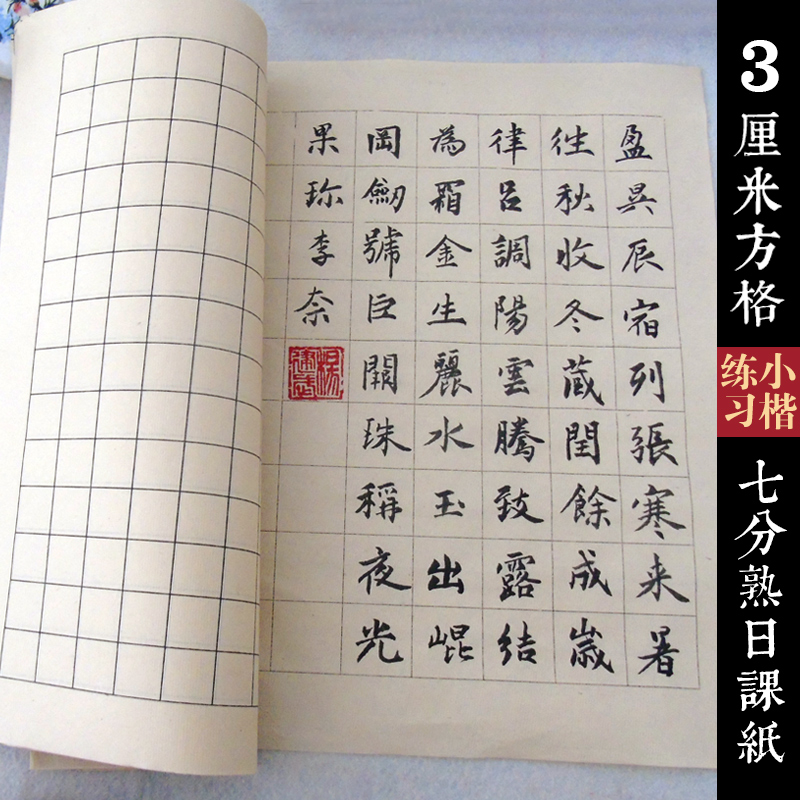 盈昃辰宿列張寒来暑
往秋收冬蔵閏餘成歳
律呂調陽雲騰致露結
為霜金生麗水玉出崐
岡劒號巨闕珠稱夜光
果珎李柰
3厘米方格
小楷
练习
七分熟日課紙